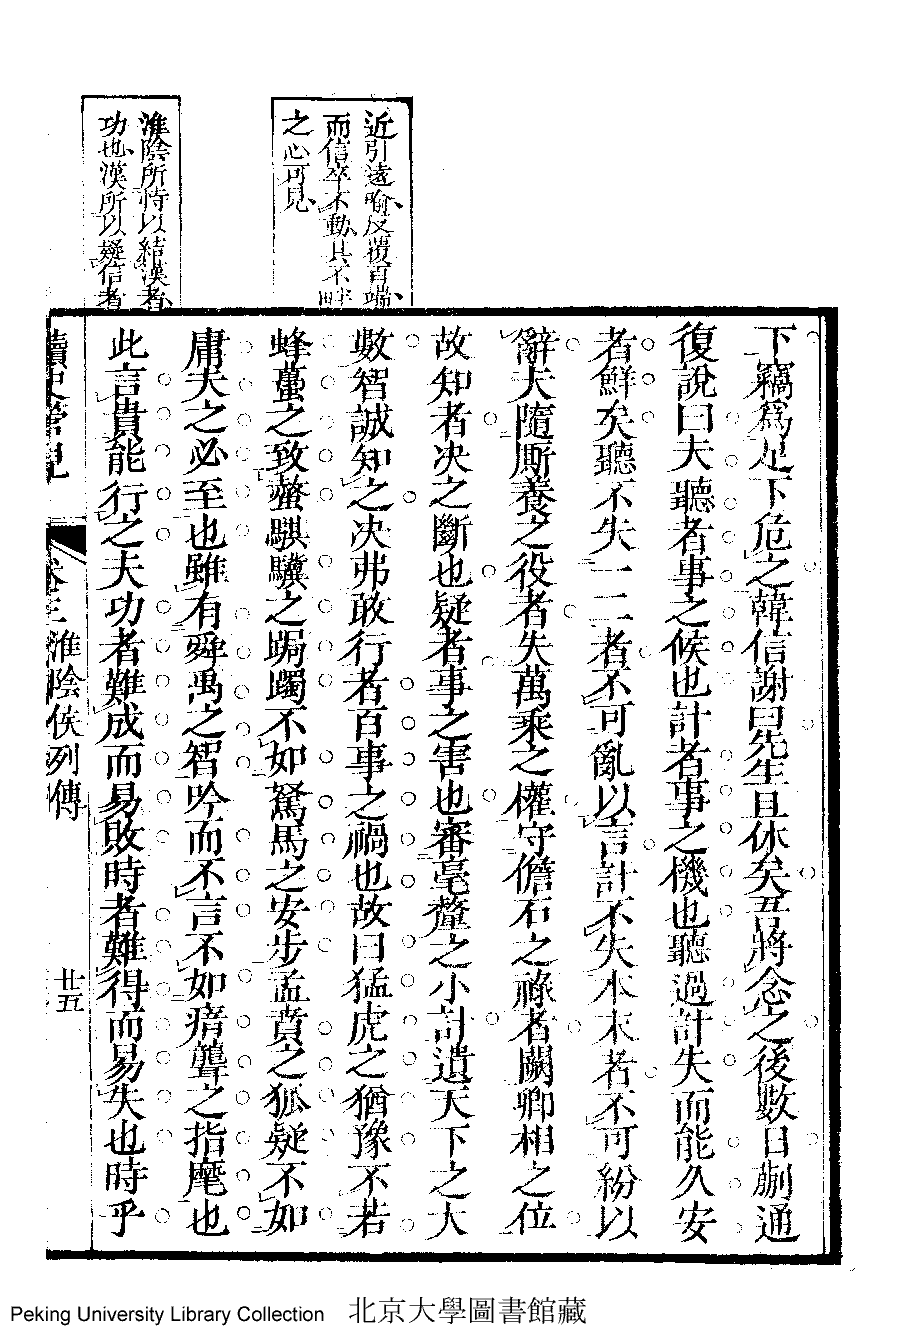 近引遠喻反覆百端
而信卒不動其不畔
之心可見
淮陰所恃以結漢者
功也漢所以疑信者
下竊為足下危之韓信謝曰先生且休矣吾將念之後數日蒯通
復說曰夫聽者事之候也計者事之機也聽過計失而能久安
者鮮矣聽不失一二者不可亂以言計不失本末者不可紛以
辭夫隨廝養之役者失萬乘之權守儋石之祿者闕卿相之位
故知者决之斷也疑者事之害也審毫釐之小計遺天下之大
數智誠知之决弗敢行者百事之禍也故曰猛虎之猶豫不若
蜂蠆之致螫騏驥之跼躅不如駑馬之安步孟賁之狐疑不如
庸夫之必至也雖有舜禹之智吟而不言不如瘖聾之指麾也
此言貴能行之夫功者難成而易敗時者難得而易失也時乎
讀史管見 卷三 淮陰侯列傳 廿五
Peking University Library Collection 北京大學圖書館藏